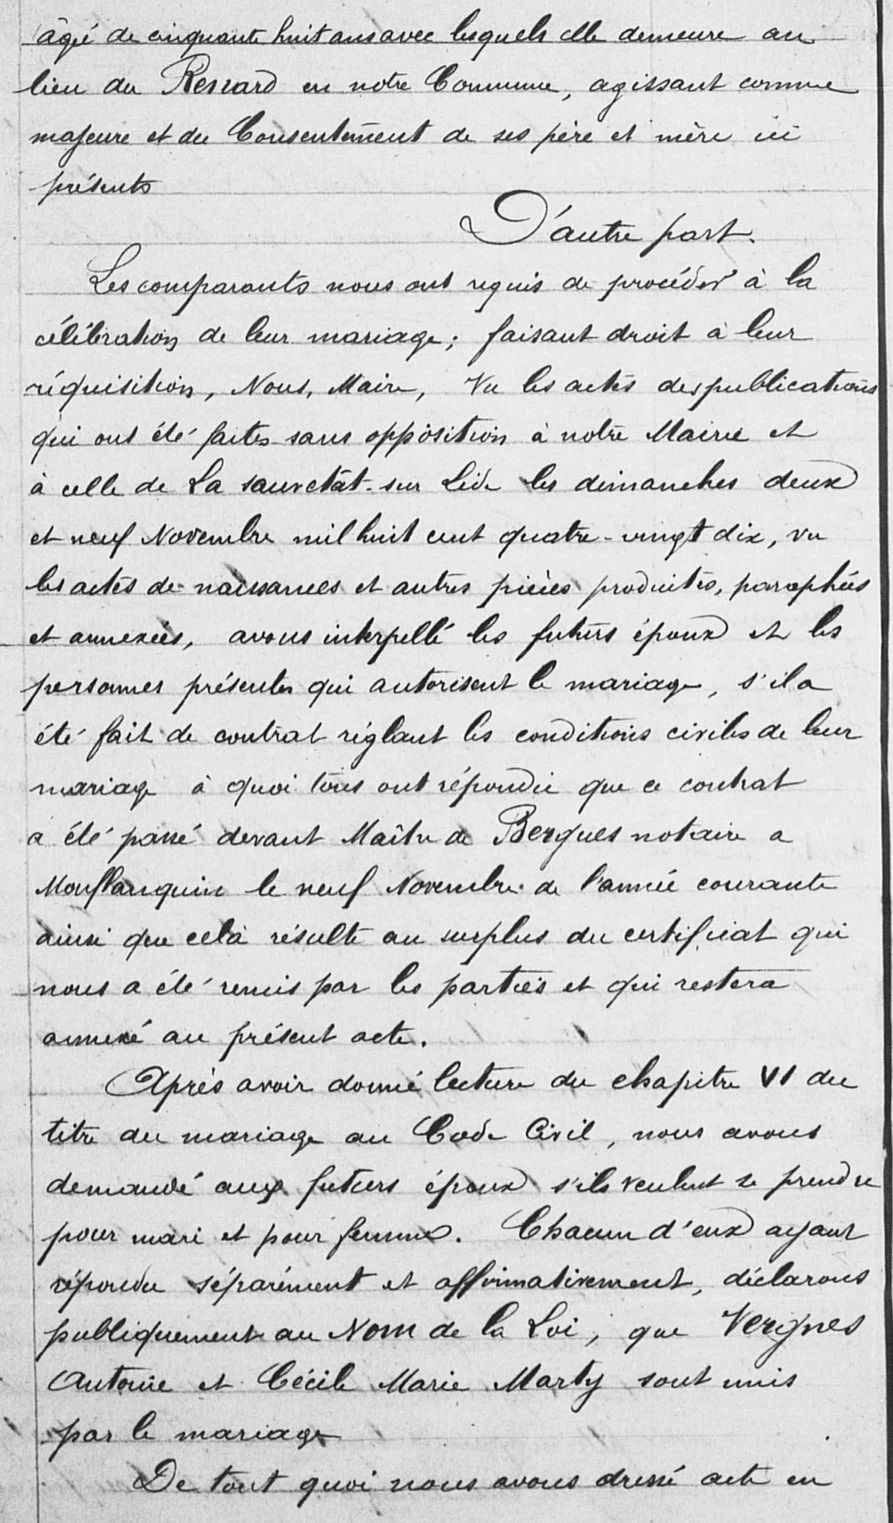 âgé de cinquante huit ans avec lesquels elle demeure au
lieu du Renard en notre Commune, agissant comme
majeure et du Consentement de ses père et mère ici
présents
D'autre part.
Les comparants nous ont requis de procéder à la
célébration de leur mariage; faisant droit à leur
réquisition, Nous, Maire, Vu les actes des publications
qui ont été faites sans opposition à notre Mairie et
à celle de La Sauvetat-sur Lède les dimanches deux
et neuf Novembre mil huit cent quatre-vingt dix, vu
les actes de naissances et autres pièces produites, paraphées
et annexées, avons interpellé les futurs époux et les
personnes présentes qui autorisent le mariage, s'il a
été fait de contrat réglant les conditions civiles de leur
mariage à quoi tous ont répondu que ce contrat
a été passé devant Maître de Bergues notaire a
Monflanquin le neuf Novembre de l'année courante
ainsi que celà résulte au surplus du certificat qui
nous a été remis par les parties et qui restera
annexé au présent acte.
Après avoir donné lecture du chapitre VI du
titre du mariage au Code Civil, nous avons
demandé aux futurs époux s'ils veulent se prendre
pour mari et pour femme. Chacun d'eux ayant
répondu séparément et affirmativement, déclarons
publiquement au Nom de la Loi, que Vergnes
Antoine et Cécile Marie Marty sont unis
par le mariage
De tout quoi nous avons dressé acte en